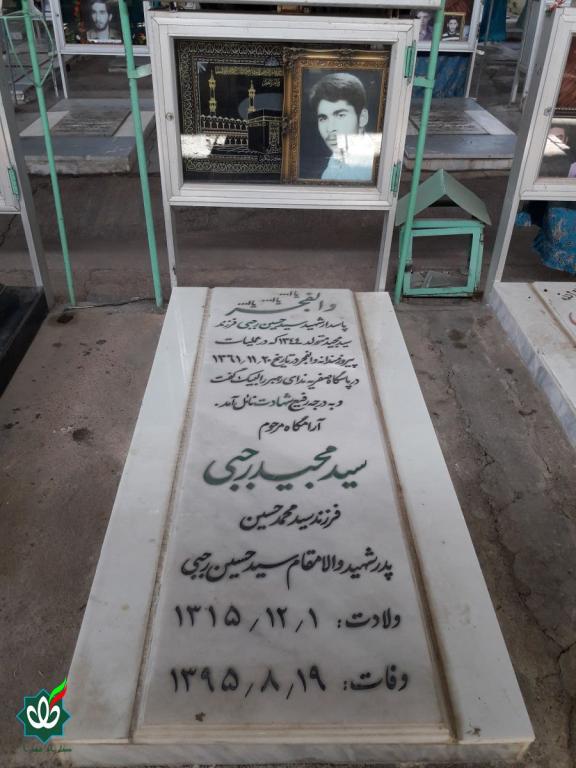 والفجر
پاسدار شهید سید حسین رجبی فرزند
سید مجید متولد ۱۳۴۴ که در عملیات
پیروزمندانه والفجر در تاریخ ۱۳۶۱/۱۱/۲۰
در پاسگاه صفریه ندای رهبر را لبیک گفت
و به درجه رفیع شهادت نائل آمد.
آرامگاه مرحوم
سید مجید رجبی
فرزند سید محمد حسین
پدر شهید والامقام سید حسین رجبی
ولادت: ۱۳۱۵/۱۲/۱
وفات: ۱۳۹۵/۸/۱۹